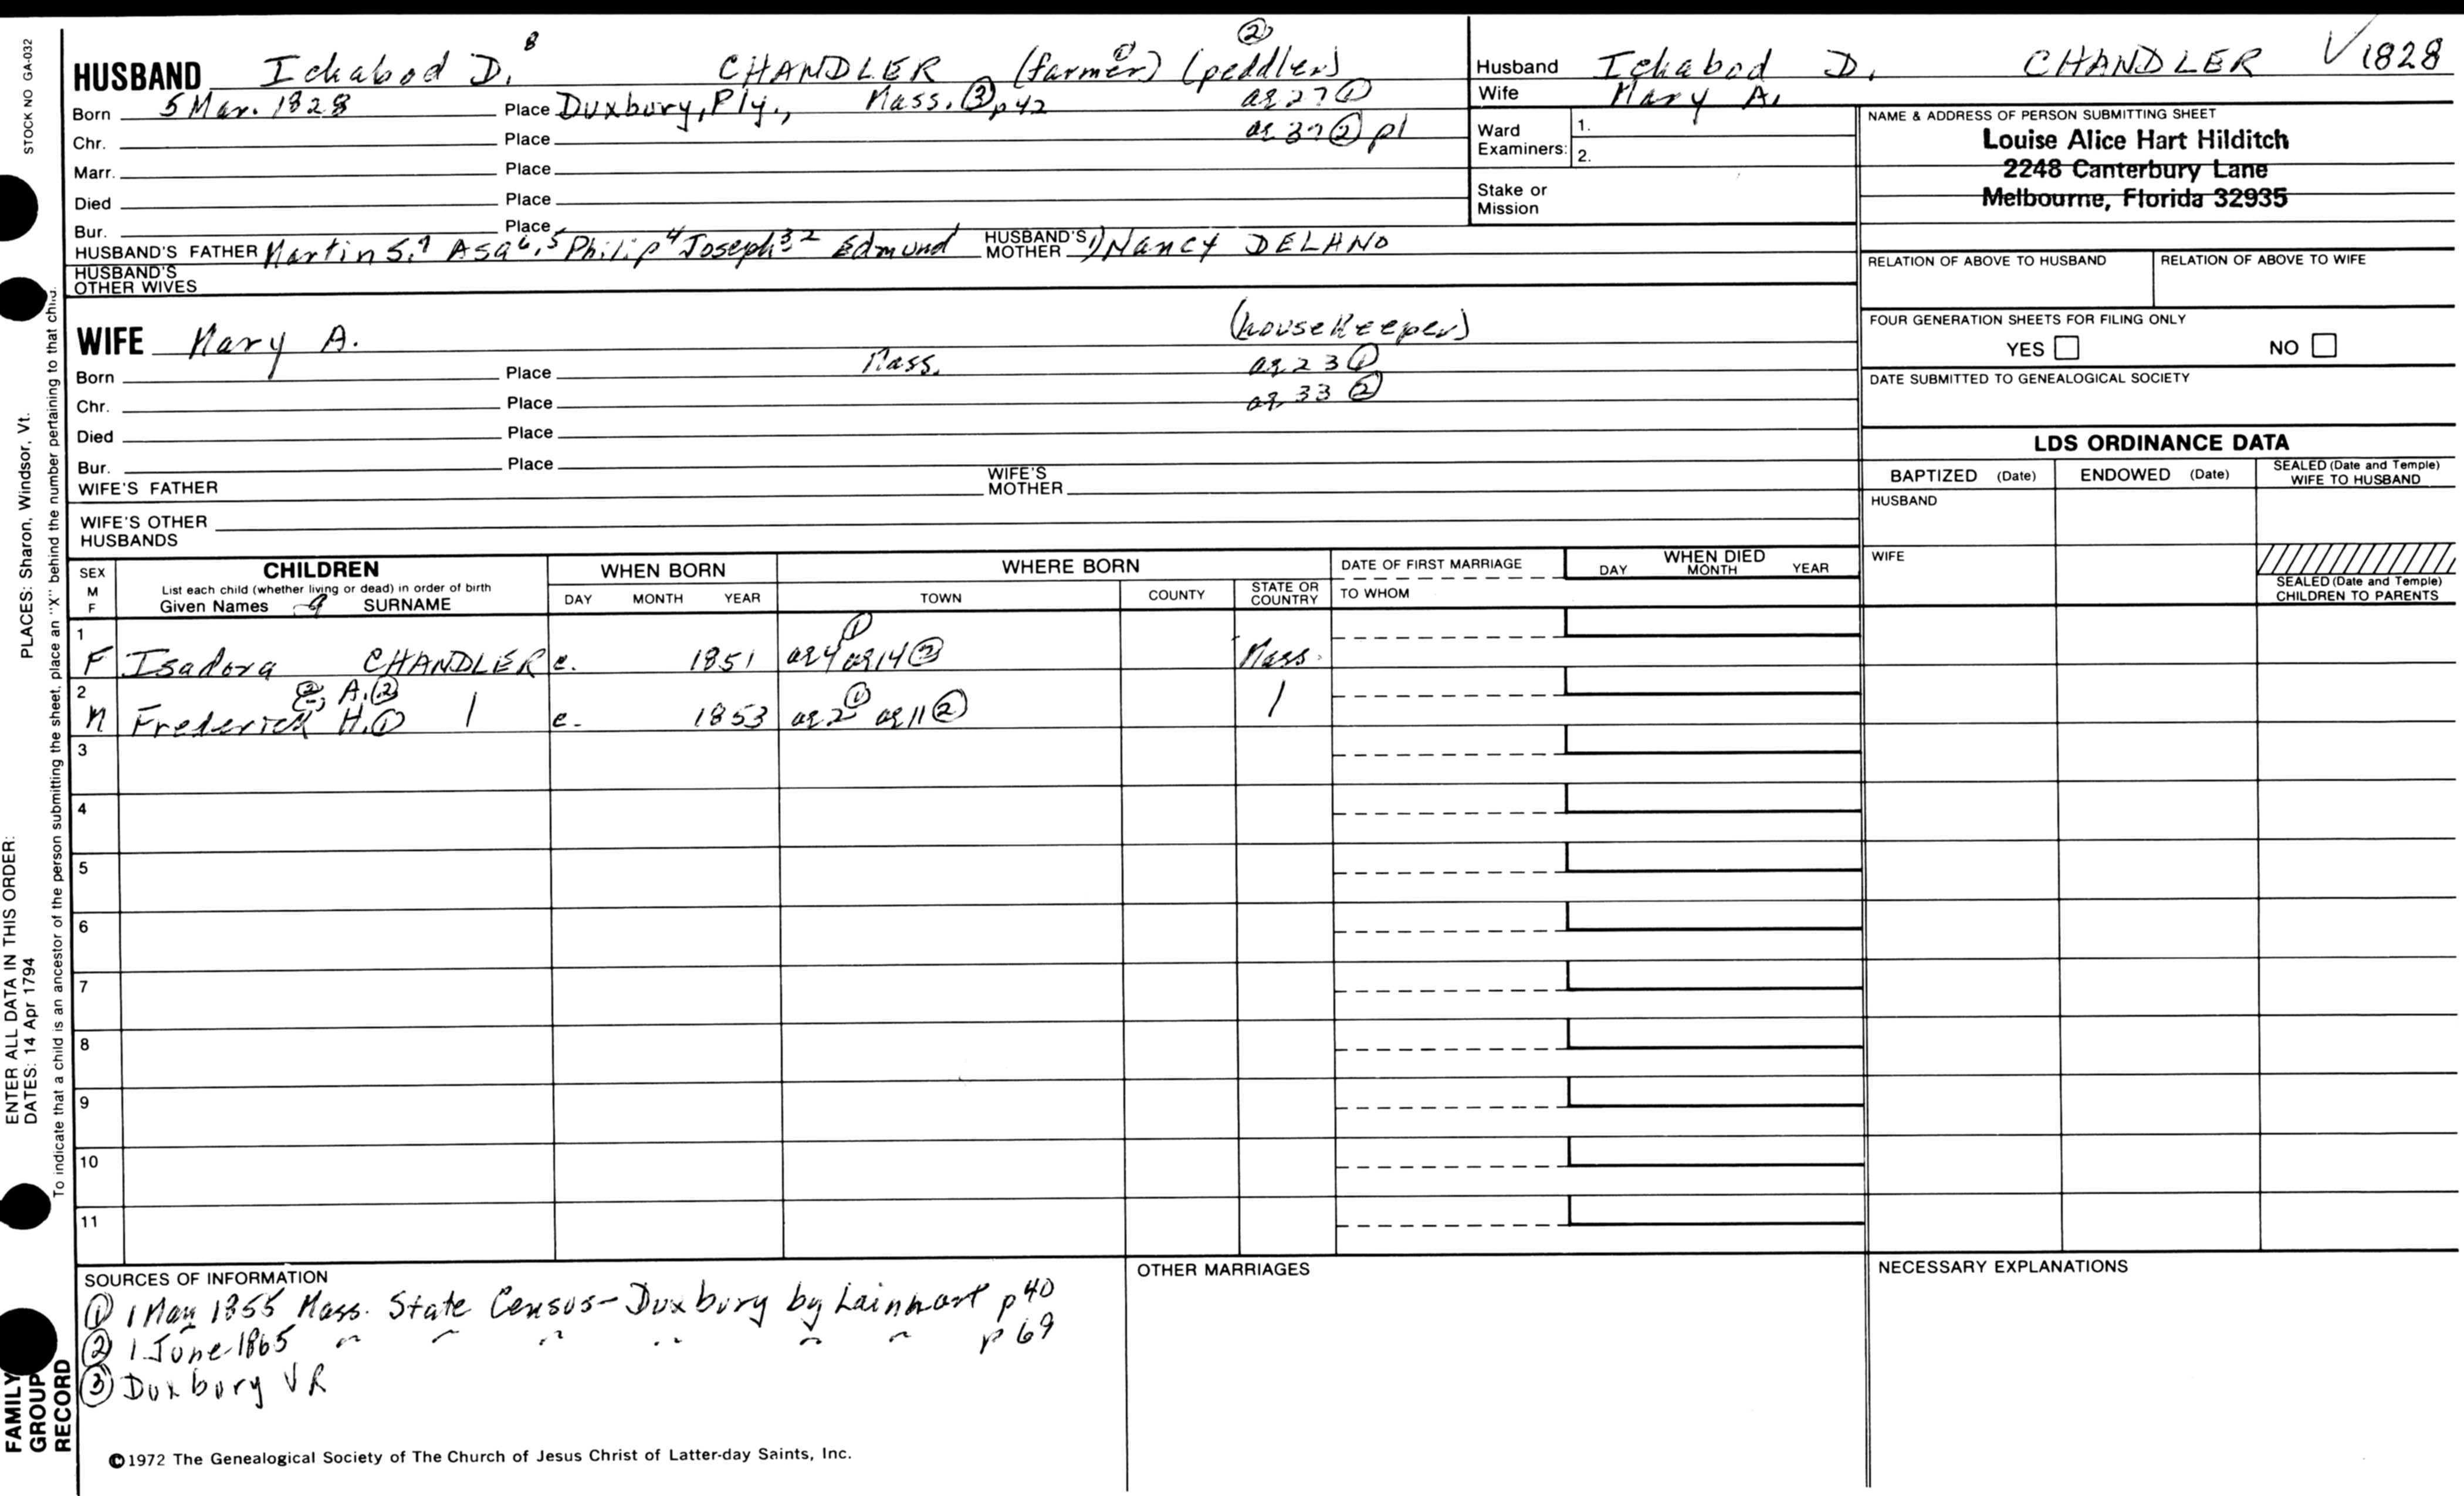 STOCK NO GA-032
PLACES: Sharon, Windsor, Vt.
ENTER ALL DATA IN THIS ORDER:
DATES: 14 Apr 1794
To indicate that a child is an ancestor of the person submitting the sheet, place an "X" behind the number pertaining to that child.
FAMILY GROUP RECORD
HUSBAND Ichabod D. 8 CHANDLER (farmer) ① (peddler) ②
Born 5 Mar. 1828 Place Duxbury, Ply., Mass. ③ p42 ag 27 ①
Chr. Place ag 37 ② p1
Marr. Place
Died Place
Bur. Place
HUSBAND'S FATHER Martin S.7 Asa6,5 Philip4 Joseph3 2 Edmund HUSBAND'S MOTHER 1) Nancy DELANO
HUSBAND'S OTHER WIVES
WIFE Mary A. (housekeeper)
Born Place Mass. ag 23 ①
Chr. Place ag 33 ②
Died Place
Bur. Place
WIFE'S FATHER WIFE'S MOTHER
WIFE'S OTHER HUSBANDS
Husband Ichabod D. CHANDLER V 1828
Wife Mary A.
Ward Examiners: 1.
2.
Stake or Mission
NAME & ADDRESS OF PERSON SUBMITTING SHEET
Louise Alice Hart Hilditch
2248 Canterbury Lane
Melbourne, Florida 32935
RELATION OF ABOVE TO HUSBAND RELATION OF ABOVE TO WIFE
FOUR GENERATION SHEETS FOR FILING ONLY
YES NO
DATE SUBMITTED TO GENEALOGICAL SOCIETY
LDS ORDINANCE DATA
BAPTIZED (Date) ENDOWED (Date) SEALED (Date and Temple) WIFE TO HUSBAND
HUSBAND
WIFE
SEALED (Date and Temple) CHILDREN TO PARENTS
SEX M F CHILDREN WHEN BORN WHERE BORN DATE OF FIRST MARRIAGE WHEN DIED
List each child (whether living or dead) in order of birth
Given Names 9 SURNAME DAY MONTH YEAR TOWN COUNTY STATE OR COUNTRY TO WHOM DAY MONTH YEAR
1 F Isadora CHANDLER c. 1851 ag 4 ① ag 14 ② Mass.
2 M Frederick H. ① A. ② c. 1853 ag 2 ① ag 11 ②
3
4
5
6
7
8
9
10
11
SOURCES OF INFORMATION
① 1 May 1855 Mass. State Census - Duxbury by Lainhart p 40
② 1 June 1865 " " " " " " p 69
③ Duxbury VR
OTHER MARRIAGES
NECESSARY EXPLANATIONS
©1972 The Genealogical Society of The Church of Jesus Christ of Latter-day Saints, Inc.